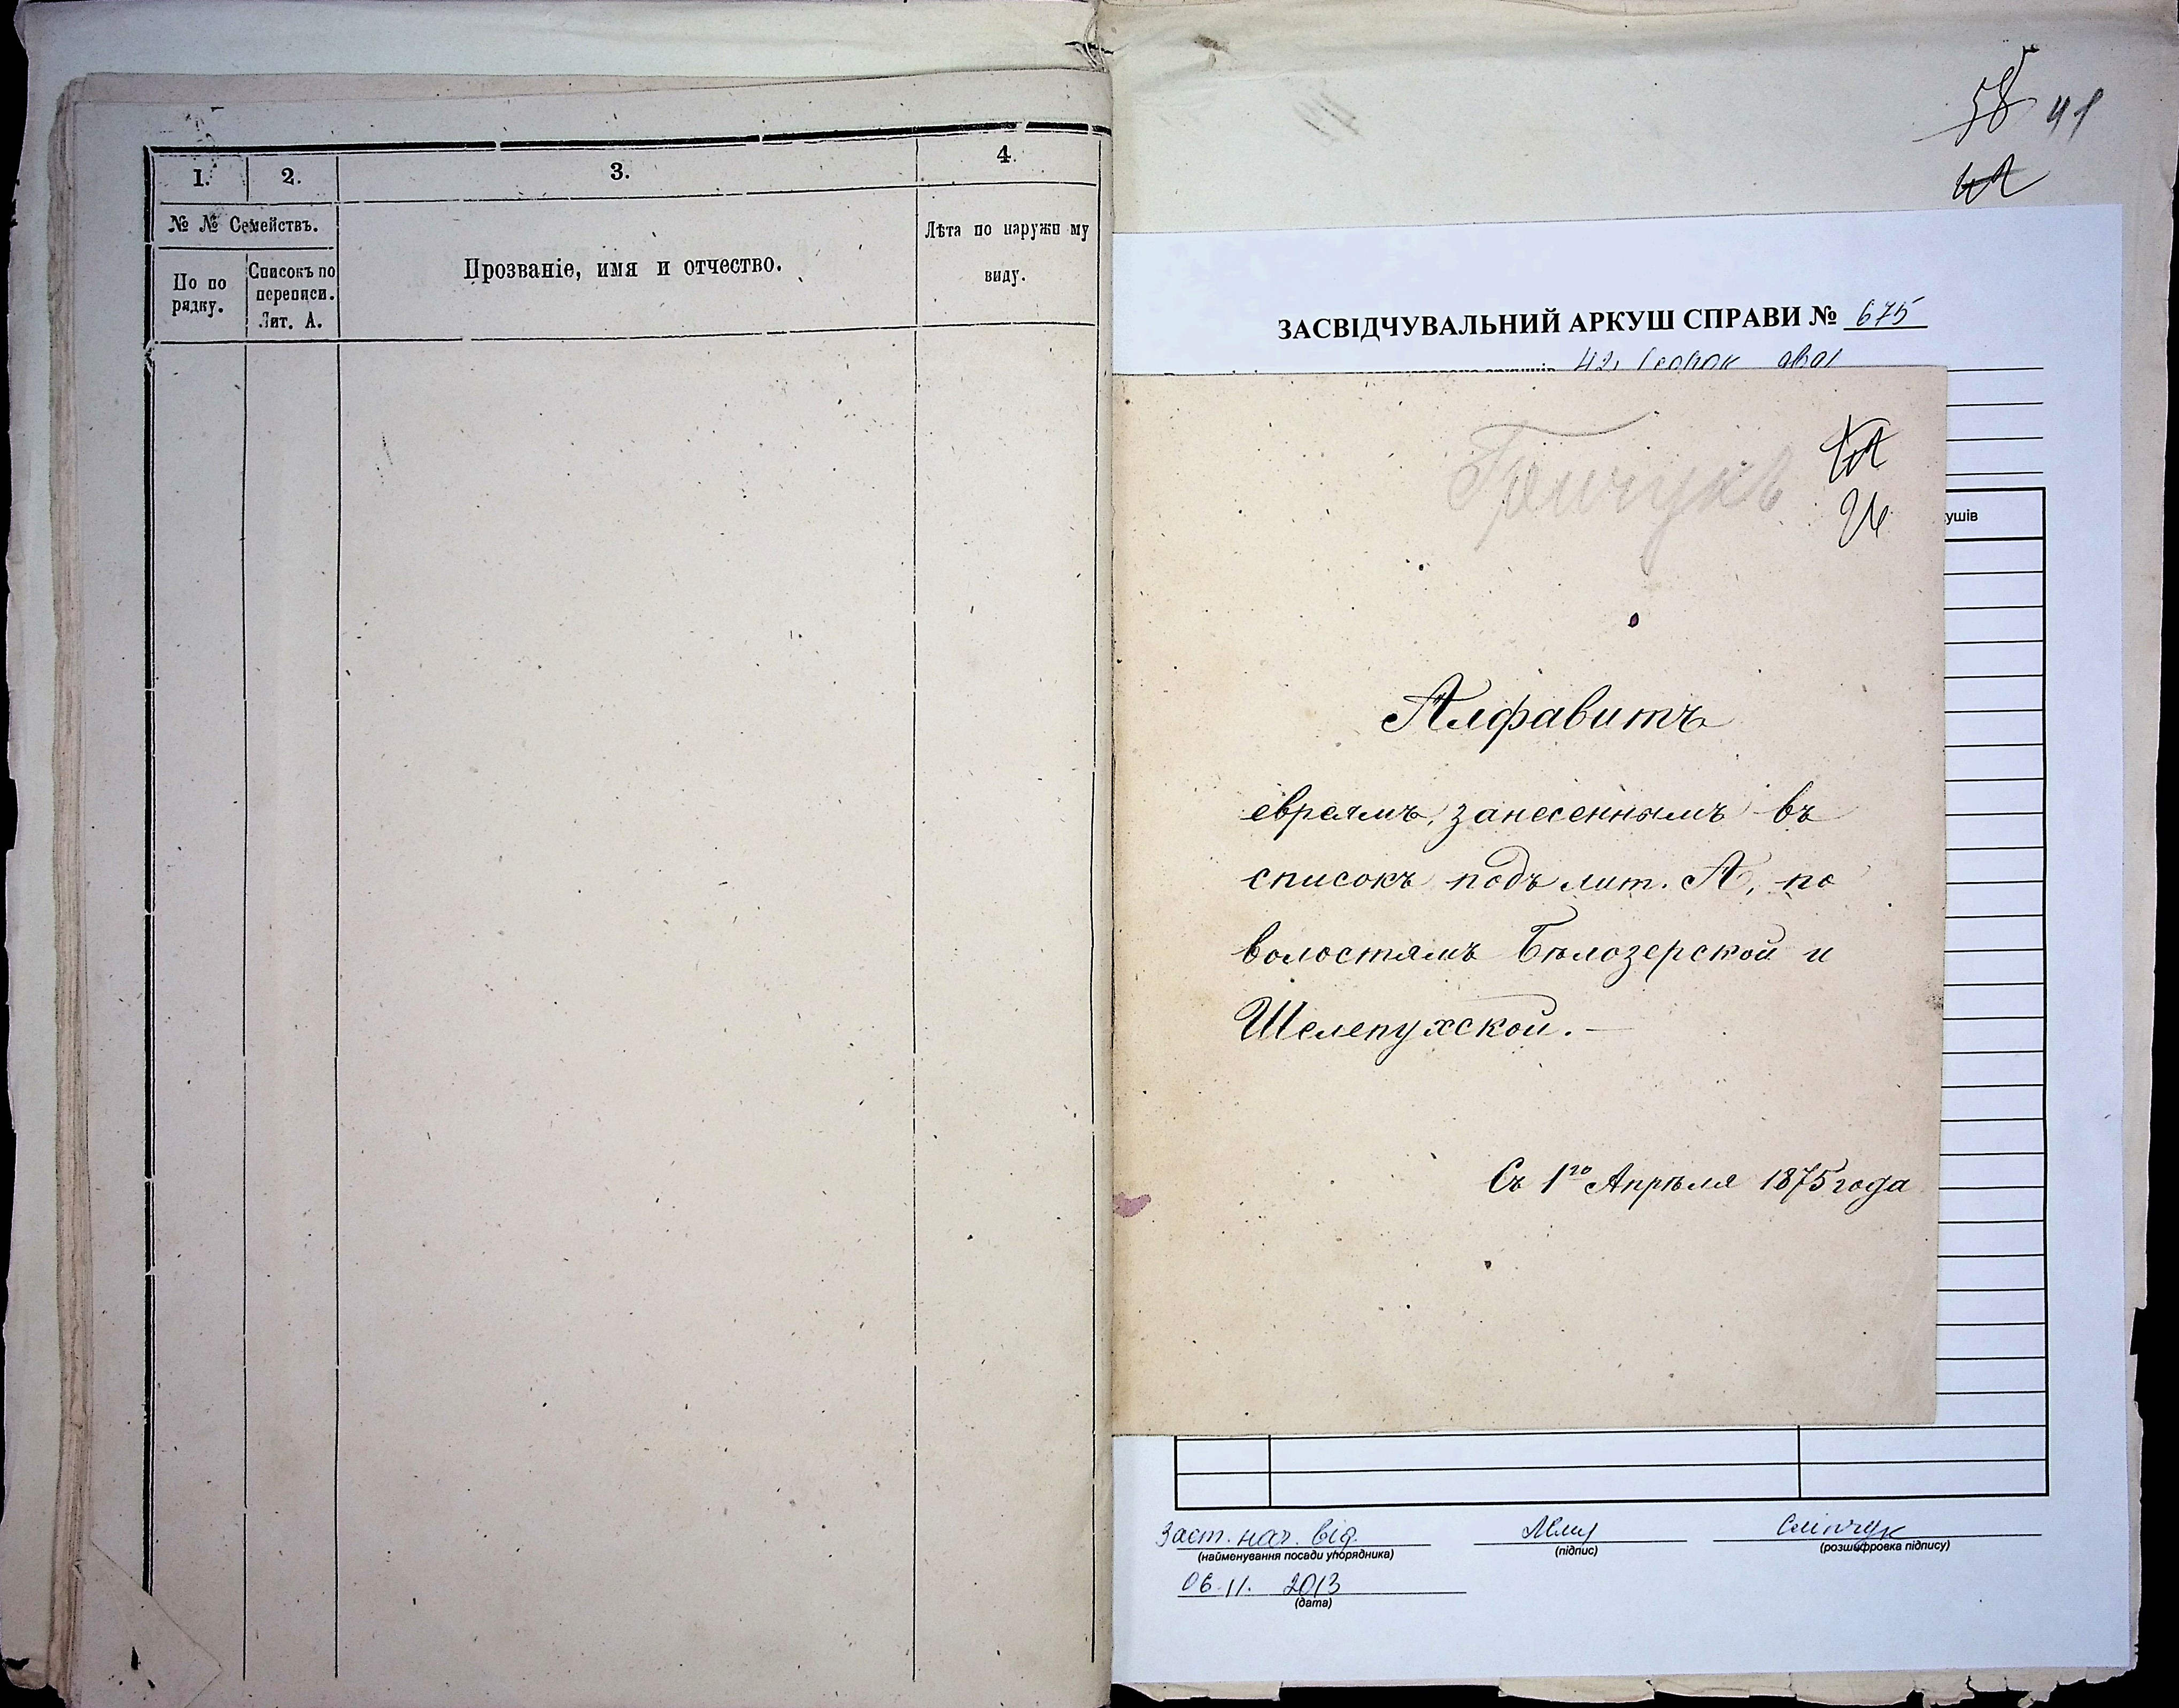 1.
2.
3.
4.
№ № Семействъ.
По по
рядку.
Списокъ по
переписи.
Лит. А.
Прозваніе, имя и отчество.
Лѣта по наружн му
виду.
58 41
ЗАСВІДЧУВАЛЬНИЙ АРКУШ СПРАВИ № 675
42, (сорок два)
Алфавитъ
евреямъ, занесеннымъ въ
списокъ подъ лит. А, по
волостямъ Бѣлозерской и
Шелепухской.—
Съ 1го Апрѣля 1875 года
Заст. нач. від.
(найменування посади упорядника)
(підпис)
(розшифровка підпису)
06.11. 2013
(дата)